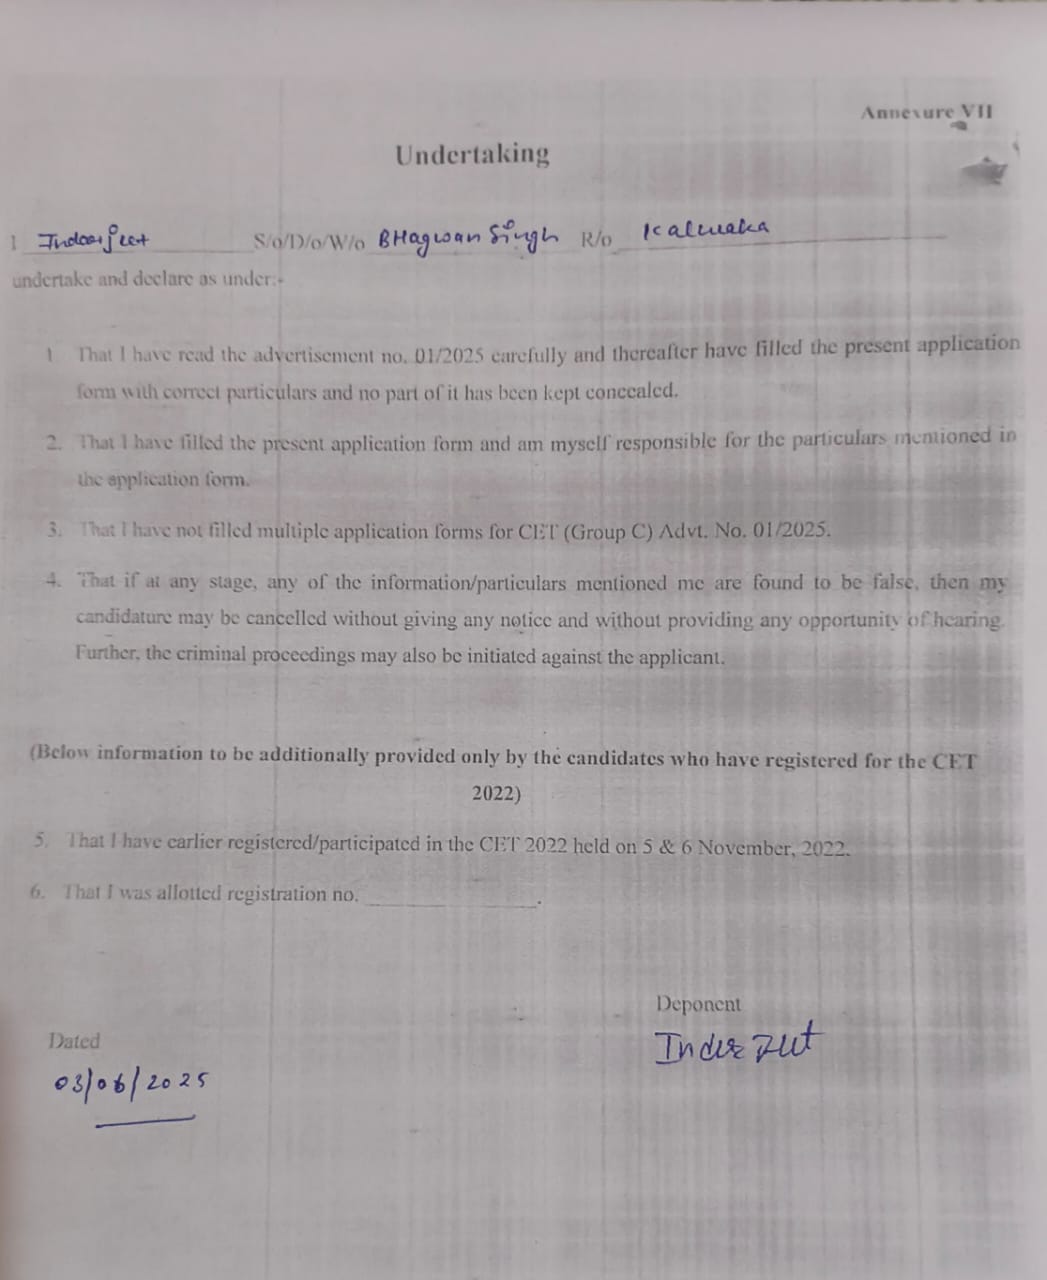 Annexure VII
Undertaking
I Inderjeet S/o/D/o/W/o BHagwan Singh R/o Kalwaka
undertake and declare as under:-
1 That I have read the advertisement no. 01/2025 carefully and thereafter have filled the present application
form with correct particulars and no part of it has been kept concealed.
2. That I have filled the present application form and am myself responsible for the particulars mentioned in
the application form.
3. That I have not filled multiple application forms for CET (Group C) Advt. No. 01/2025.
4. That if at any stage, any of the information/particulars mentioned me are found to be false, then my
candidature may be cancelled without giving any notice and without providing any opportunity of hearing.
Further, the criminal proceedings may also be initiated against the applicant.
(Below information to be additionally provided only by the candidates who have registered for the CET
2022)
5. That I have earlier registered/participated in the CET 2022 held on 5 & 6 November, 2022.
6. That I was allotted registration no. ____________.
Deponent
Inderjeet
Dated
03/06/2025